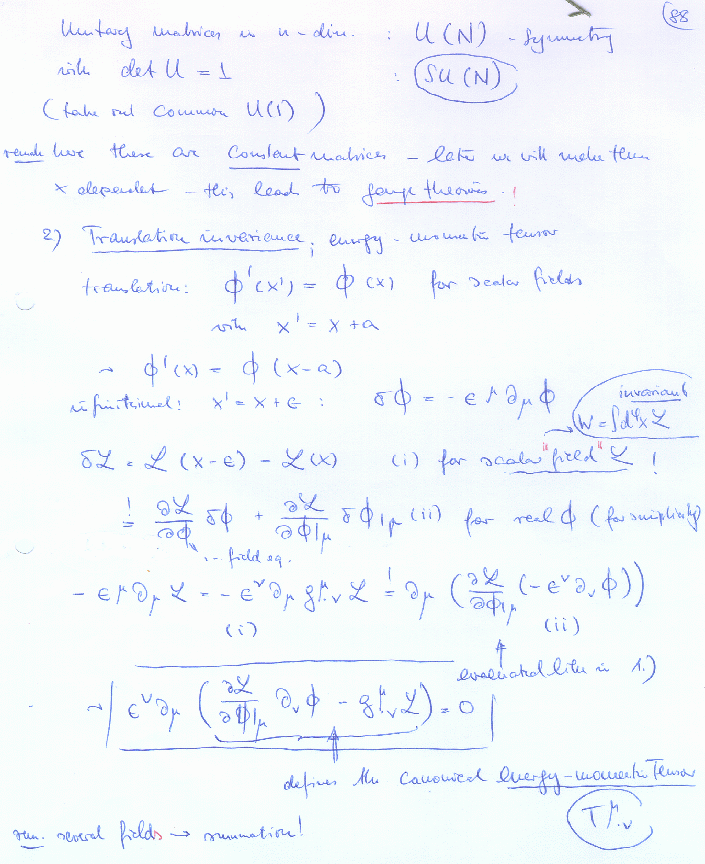 88
Unitary matrices in n-dim. : U(N) - Symmetry
with det U = 1 : SU(N)
(take out common U(1))
remark here these are constant matrices – later we will make them
x dependent – this leads to gauge theories. !
2) Translation invariance, energy-momentum tensor
translation: ϕ'(x') = ϕ(x) for scalar fields
with x' = x + a
→ ϕ'(x) = ϕ(x-a)
infinitesimal: x' = x + ϵ : δϕ = -ϵ^μ ∂_μ ϕ
invariant
W = ∫d⁴x ℒ
δℒ = ℒ(x-ϵ) - ℒ(x) (i) for scalar "field" ℒ !
=! ∂ℒ/∂ϕ δϕ + ∂ℒ/∂ϕ|μ δϕ|μ (ii) for real ϕ (for simplicity)
field eq.
-ϵ^μ ∂_μ ℒ = -ϵ^ν ∂_μ g^μ_ν ℒ =! ∂_μ (∂ℒ/∂ϕ|μ (-ϵ^ν ∂_ν ϕ))
(i) (ii)
evaluated like in 1.)
→ ϵ^ν ∂_μ (∂ℒ/∂ϕ|μ ∂_ν ϕ - g^μ_ν ℒ) = 0
defines the canonical energy-momentum Tensor
T^μ_ν
rem. several fields → summation!